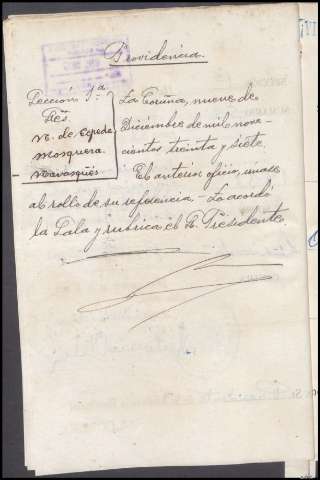 Providencia.
Sección 1ª
Sres.
M. de Cepeda
Mosquera
Navasqüés
La Coruña, nueve de
Diciembre de mil nove-
cientos treinta y siete.
El anterior oficio, únase
al rollo de su referencia.- Lo acordó
la Sala y rubrica el S. Presidente.